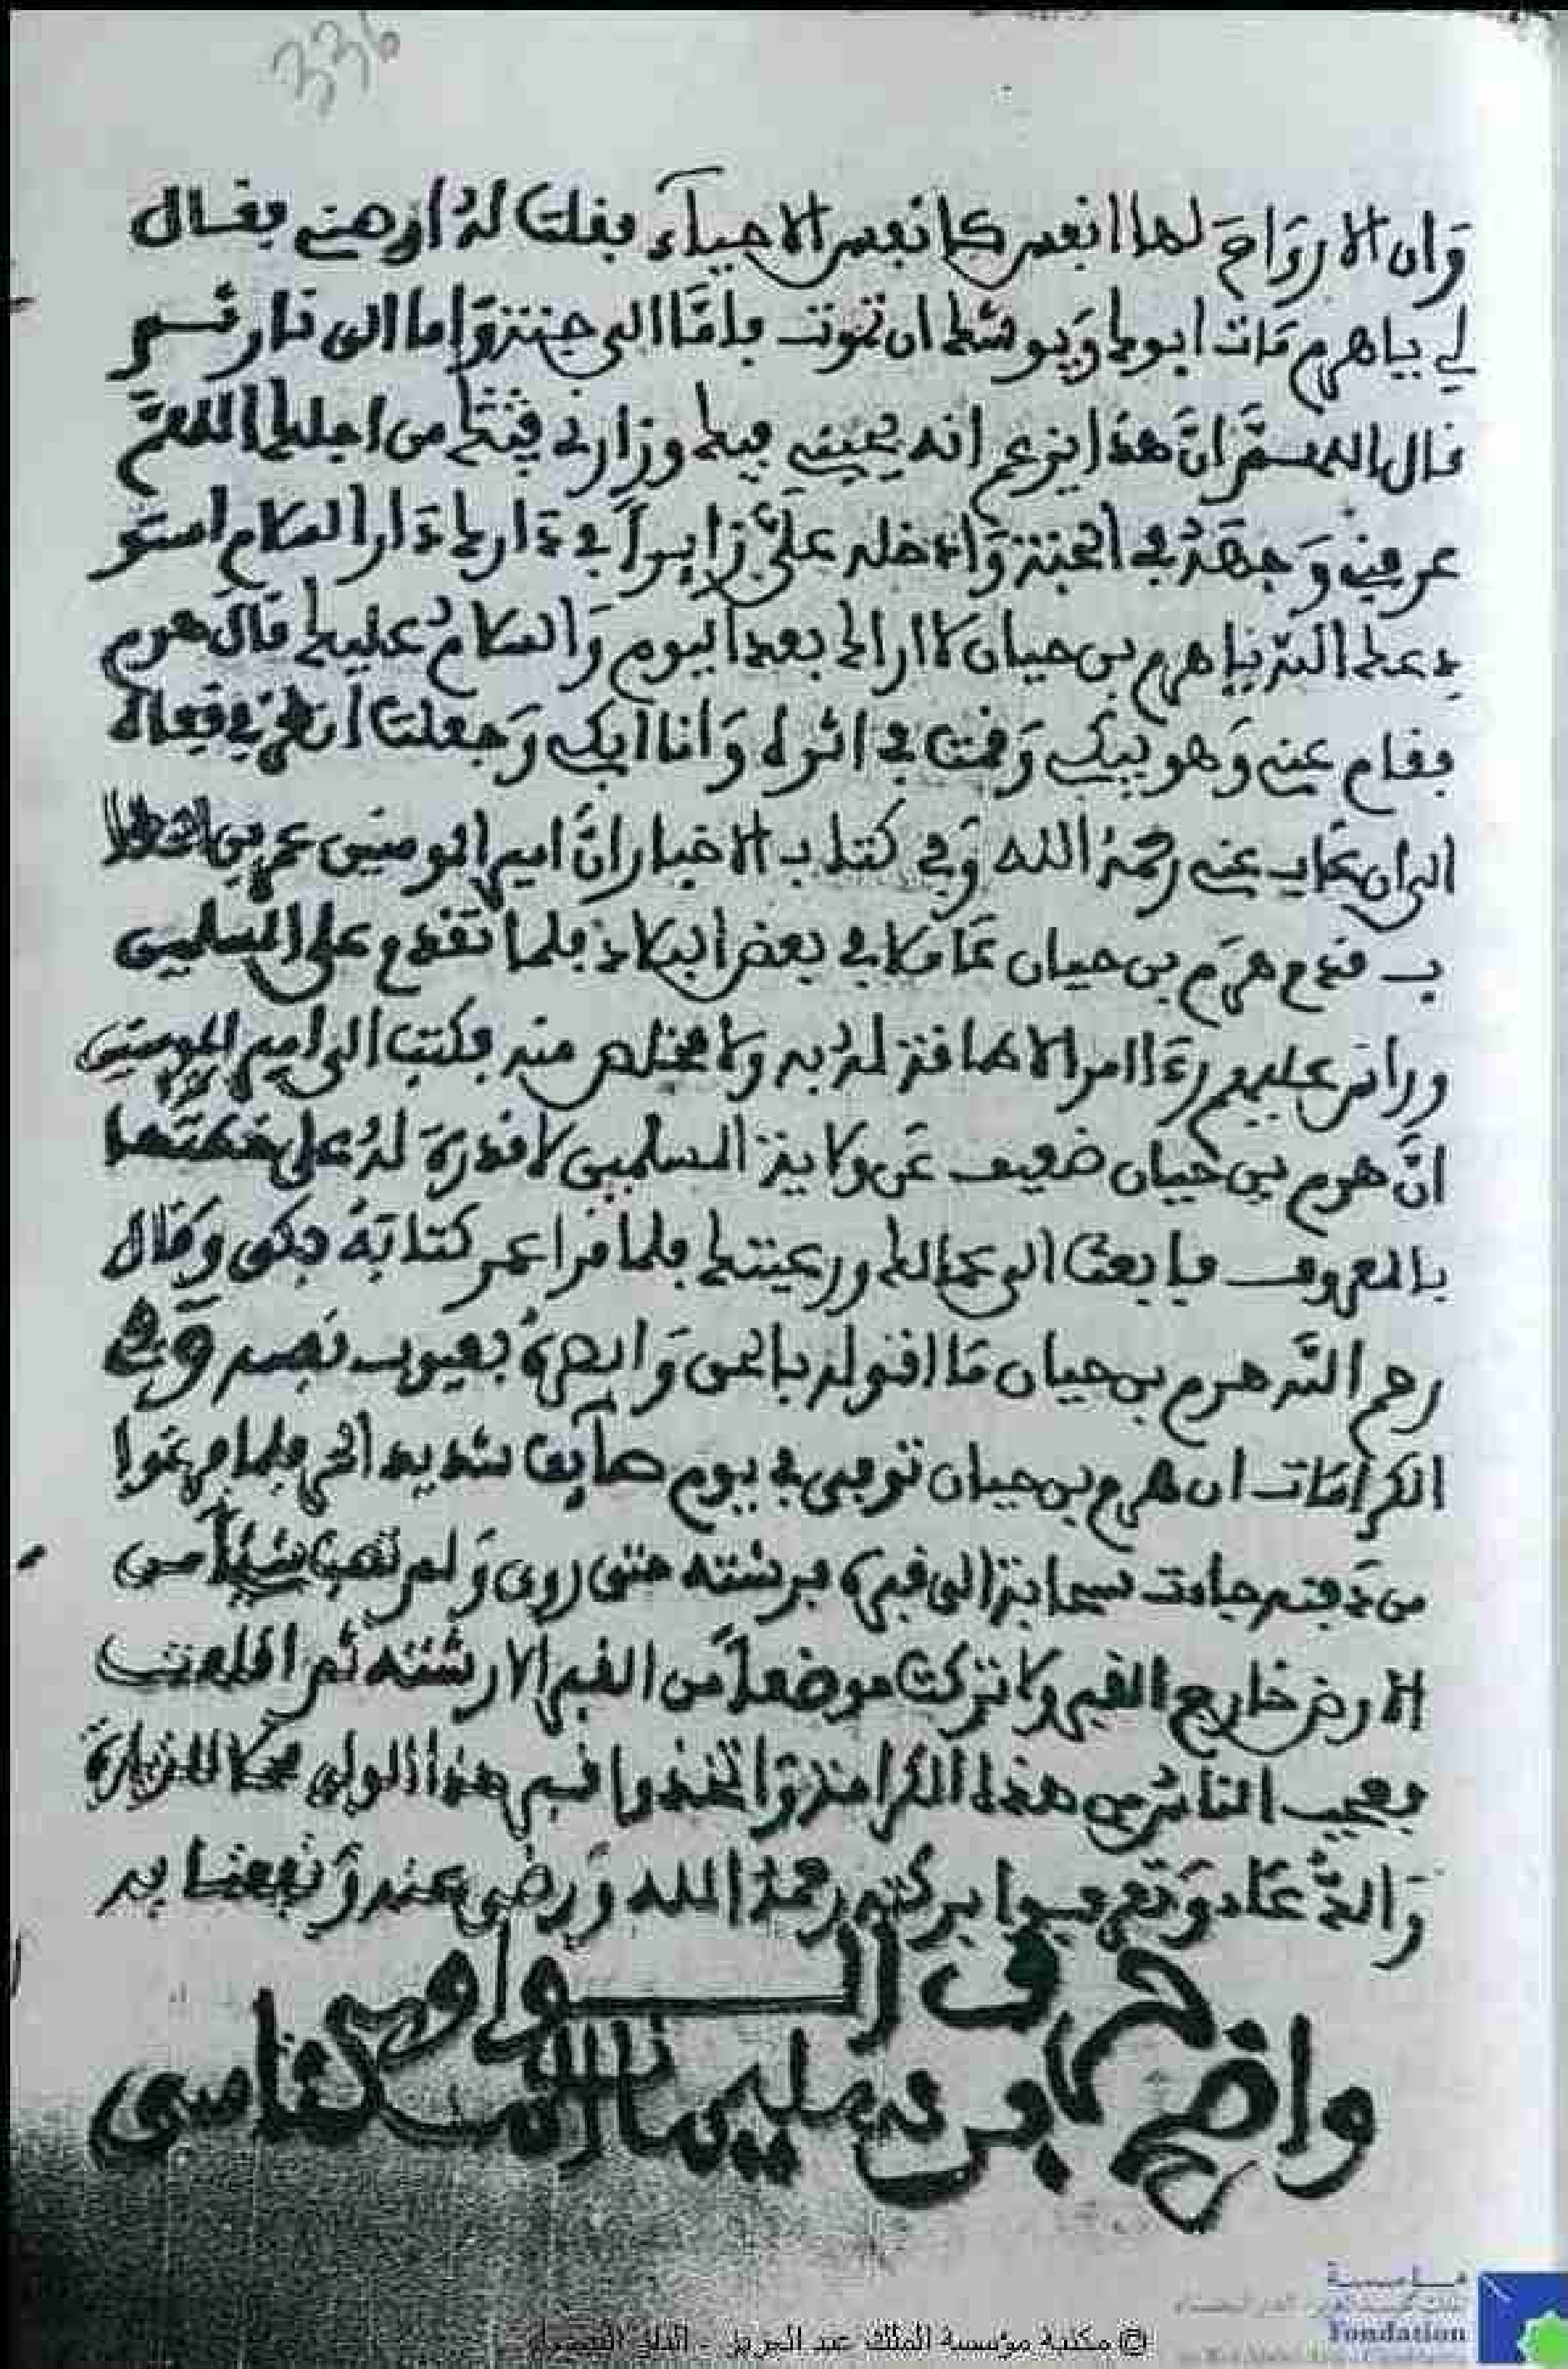 336
وَان الارْوَاحَ لها انفس كانفس الاحيآء فقلت لهُ اوصنے فقال
لي ياهرم مَات ابوك وَيوشك ان تموت فامَّا الى جنة وَاما الى نار ثم
قال اللهم انَّ هذا يزعم انه يحبني فيك وزارني فيك من اجلك اللهم
عرفني وَجهَهُ في الجنة وَادخله عَلَيَّ زايراً في دارك دَار السلام استو
دعك الله ياهرم بن حيان لا اراك بعد اليوم وَالسلامُ عليك قال هرم
فقام عني وَهو يبكي وَقمت في اثره وَانا ابكي وَجعلت انظر في قفاه
الى ان غاب عني رحمهُ الله وَفي كتاب الاخبار انَّ امير المومنين عمر بن الخطا
ب قدم هرم بن حيان عَاملا في بعض البلاد فلما تقدم على المسلمين
ورانس عليهم رءا امر الاطاقة لهُ به ولا مخلص منه فكتب الى امير المومنين
انَّ هرم بن حيان ضعيف عن ولاية المسلمين لا قدرة لهُ على
بالمعروف فابعث الى عمالك ورعيتك فلما قرا عمر كتابَهُ بكى وَقال
رحم اللّه هرم بن حيان مَا اقوله بالحق وَابصرهُ بعيوب نفسه وَفي
الكرامَات ان هرم بن حيان توفى في يوم صآيف شديد الحر فلما فرغوا
من دَفنه جاءت سحابة الى قبره فرشته حتى روى وَلم تصب شيئاً من
الارض خارج القبر ولا تركت موضعاً من القبر الا رشته ثم اقلعت
فعجب الناس من هذه الكرامة وَاتخذوا قبر هذا الولى محلا للزيارة
وَالدُّعَاء وَتعرفوا بركته رحمهُ الله وَرضي عنه وَنفعنا به
حرف الــواو
واضح بن سليمان المكناسي
© مكتبة مؤسسة الملك عبد العزيز - الدار البيضاء
مؤسسة
Fondation